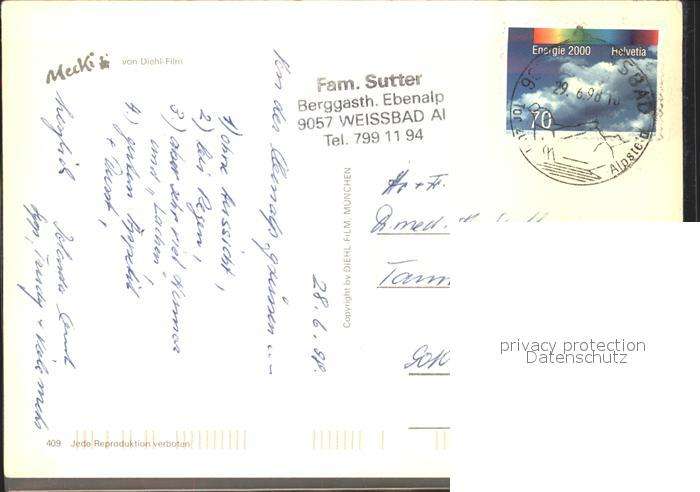 Mecki
von Diehl-Film
Fam. Sutter
Berggasth. Ebenalp
9057 WEISSBAD AI
Tel. 799 11 94
Energie 2000 Helvetia
70
29.6.98
Alpstein
Von der Ebenalp grüssen
1) ohne Aussicht,
2) bei Regen,
3) aber sehr viel Humor
und Lachen
4) gutem Appetit
+ Durst,
herzlich
28.6.98.
Copyright by DIEHL FILM, MÜNCHEN
Dr. med.
privacy protection
Datenschutz
409 Jede Reproduktion verboten